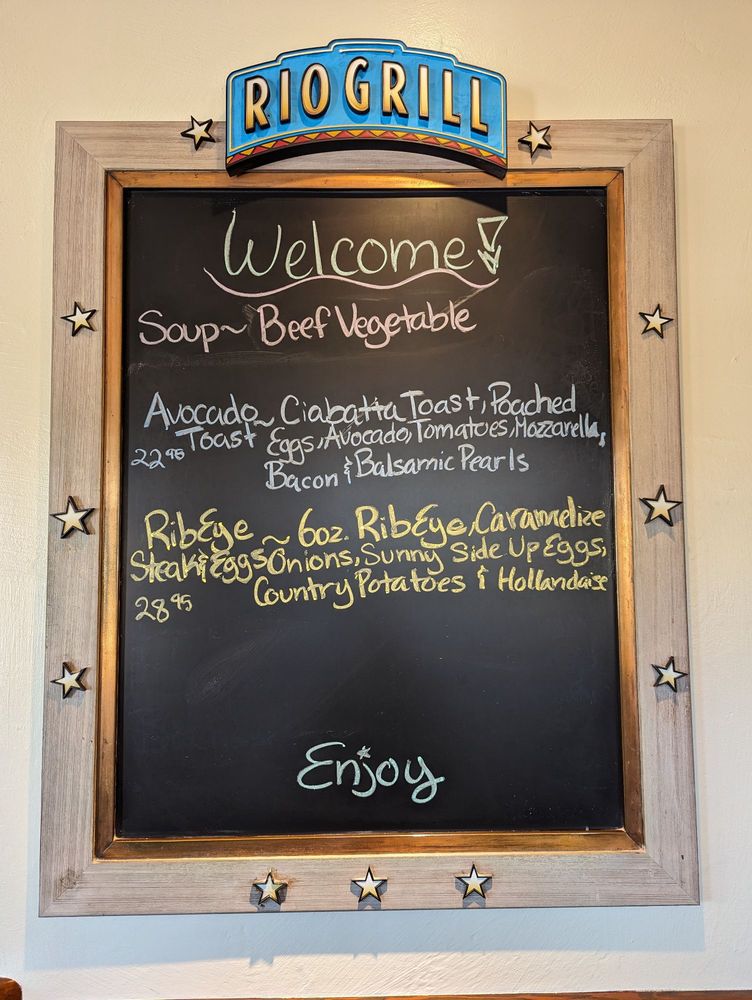 RIO GRILL
Welcome!
Soup~ Beef Vegetable
Avocado~ Ciabatta Toast, Poached
Toast Eggs, Avocado, Tomatoes, Mozzarella,
22.95 Bacon & Balsamic Pearls
RibEye ~ 6oz. RibEye, Caramelize
Steak & Eggs Onions, Sunny Side Up Eggs,
28.95 Country Potatoes & Hollandaise
Enjoy